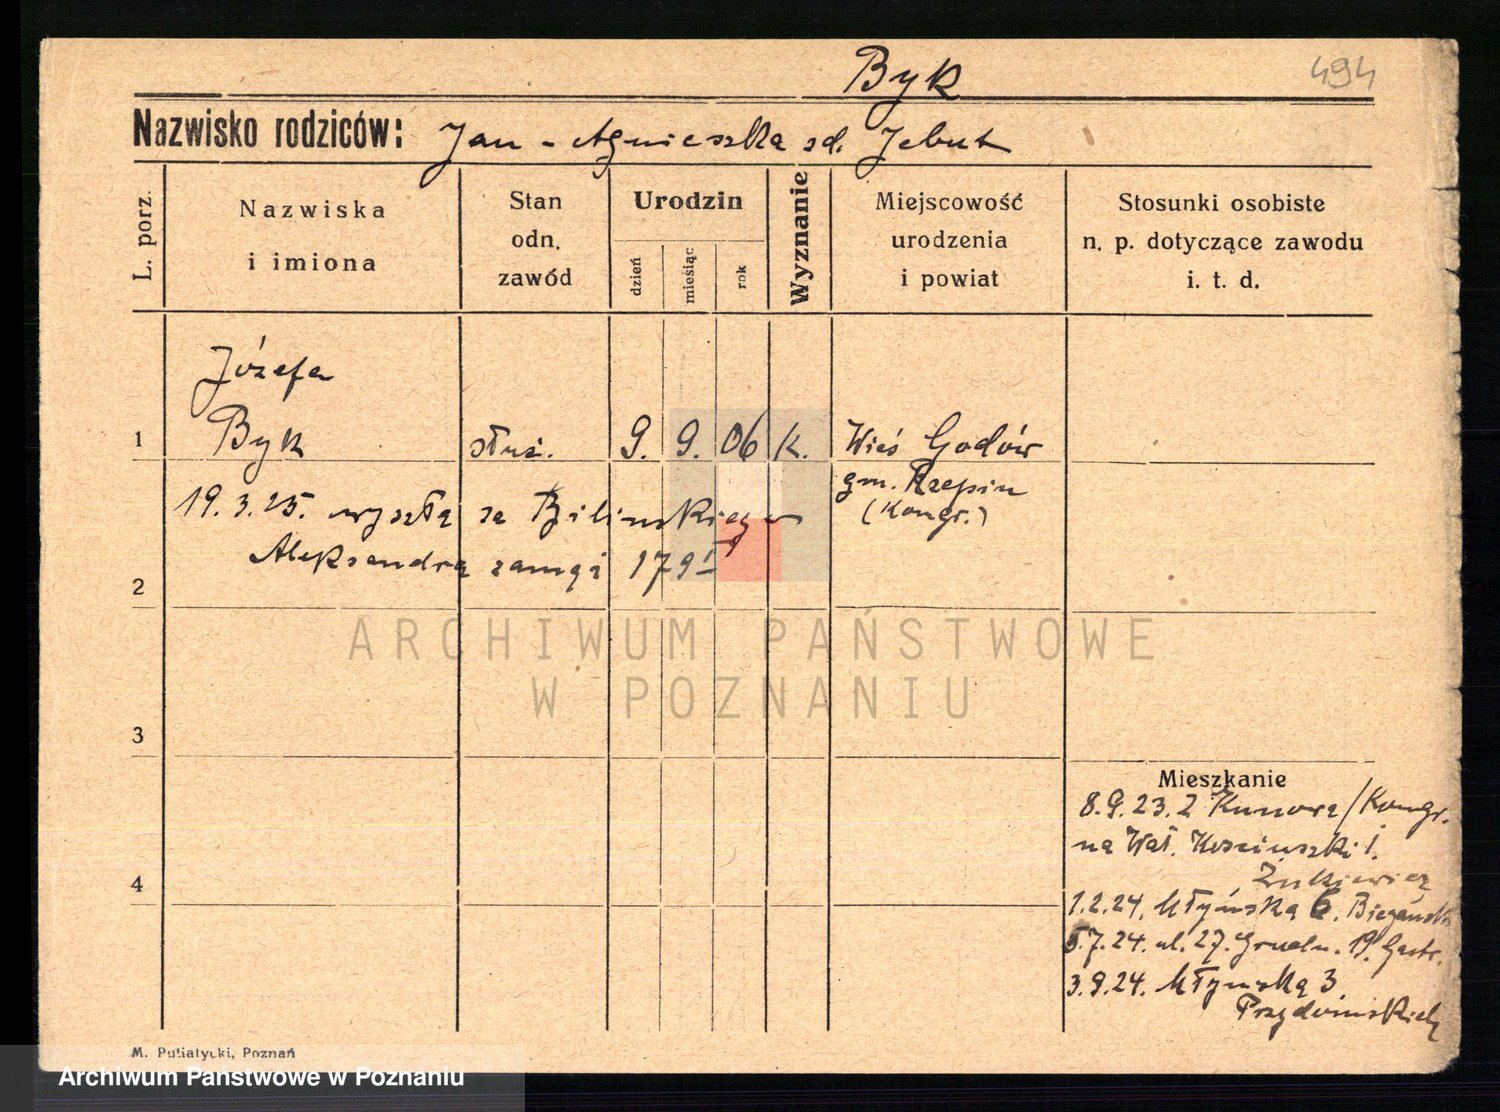 Byk
494
Nazwisko rodziców: Jan - Agnieszka zd. Jebut
L. porz.
Nazwiska i imiona
Stan odn. zawód
Urodzin
dzień
miesiąc
rok
Wyznanie
Miejscowość urodzenia i powiat
Stosunki osobiste n. p. dotyczące zawodu i. t. d.
Józefa
1 Byk służ. 9. 9. 06 K. Wieś Godów
gm. Rzepin
(Kongr.)
19.3.25. wyszła za Bilinskiego
Aleksandra zamąż
2
ARCHIWUM PAŃSTWOWE
W POZNANIU
3
Mieszkanie
8.9.23. Z Kunowa/Kongr.
na Wał. Kosciuszki 1.
4
1.2.24. Młyńską 6.
5.7.24. ul. 27. Grudn. 19.
3.9.24. Młynską 3
M. Putiatycki, Poznań
Archiwum Państwowe w Poznaniu